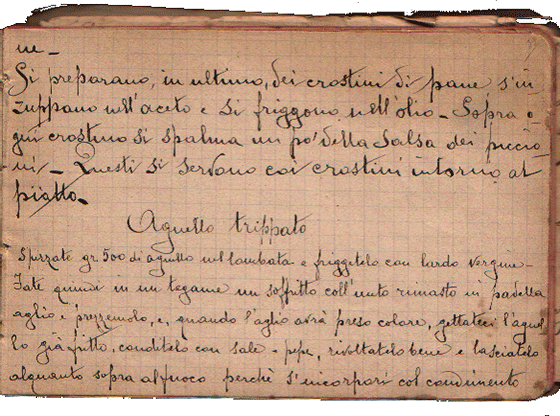 ne_
Si preparano, in ultimo, dei crostini di pane, s'in
zuppano nell'aceto e si friggono nell'olio_ Sopra o-
gni crostino si spalma un po' della Salsa dei piccio
ni_ Questi si servono coi crostini intorno al
piatto_
Agnello trippato
Spezzate gr. 500 di agnello nel lombata e friggetelo con lardo vergine_
Fate quindi in un tegame un soffritto coll'unto rimasto in padella
aglio e prezzemolo, e, quando l'aglio avrà preso colore, gettateci l'agnel
lo già fritto, conditelo con sale e pepe, rivoltatelo bene e lasciatelo
alquanto sopra al fuoco perchè s'incorpori col condimento